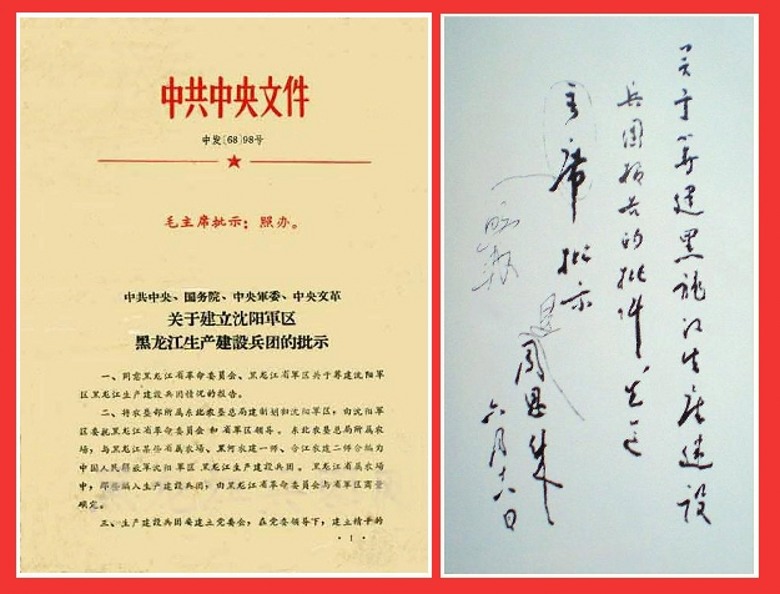 中共中央文件
中发〔68〕98号
毛主席批示：照办。
中共中央、国务院、中央軍委、中央文革
关于建立沈阳軍区
黑龙江生产建設兵团的批示
一、同意黑龙江省革命委員会、黑龙江省軍区关于筹建沈阳軍
区黑龙江生产建設兵团情况的报告。
二、将农垦部所属东北农垦总局建制划归沈阳軍区，由沈阳軍
区委託黑龙江省革命委員会和省軍区領导。东北农垦总局所属农
場，与黑龙江某些省属农場、黑河农建一师、合江农建二师合編为
中国人民解放軍沈阳軍区黑龙江生产建設兵团。黑龙江省属农場
中，那些編入生产建設兵团，由黑龙江省革命委員会与省軍区商量
确定。
三、生产建設兵团要建立党委会，在党委領导下，建立精干的
· 1 ·
关于筹建黑龙江生产建设
兵团报告的批件，先送
主席批示
周恩来
六月十八日